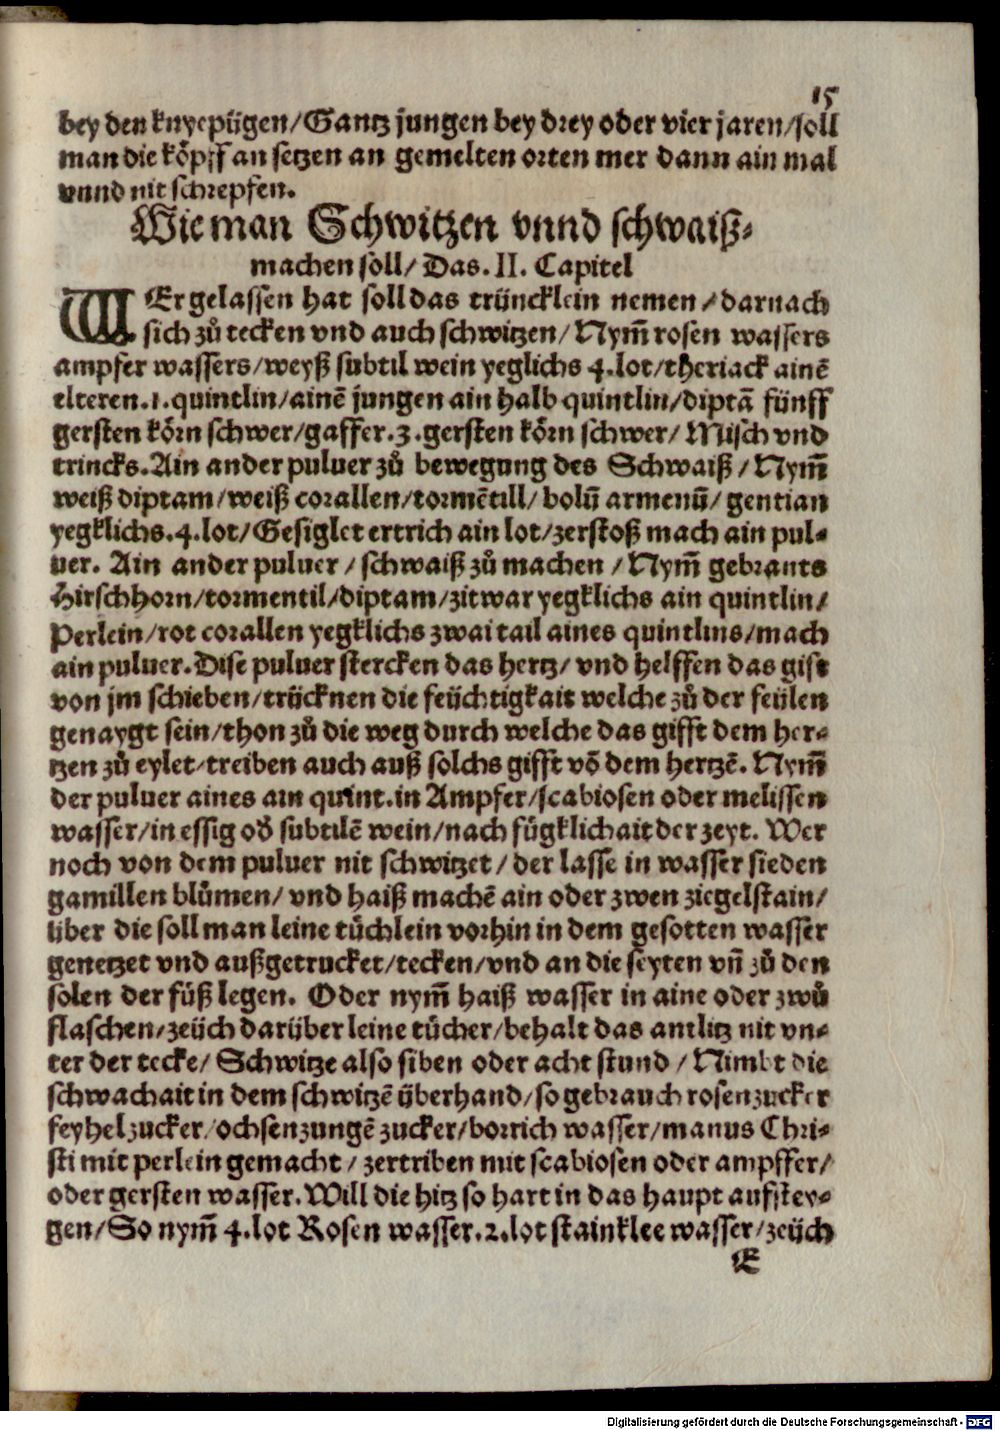 15
bey den knyepügen/Gantz jungen bey drey oder vier jaren/soll
man die köpff an setzen an gemelten orten mer dann ain mal
vnnd nit schrepfen.
Wie man Schwitzen vnnd schwaiß⸗
machen soll/ Das. II. Capitel
WEr gelassen hat soll das trüncklein nemen/darnach
sich zů tecken vnd auch schwitzen/ Nym̃ rosen wassers
ampfer wassers/weyß subtil wein yeglichs 4.lot/theriack ainẽ
elteren.1.quintlin/ainẽ jungen ain halb quintlin/diptã fünff
gersten körn schwer/gaffer.3.gersten körn schwer/ Misch vnd
trincks.Ain ander puluer zů bewegung des Schwaiß/Nym̃
weiß diptam/weiß corallen/tormẽtill/bolũ armenũ/gentian
yegklichs.4.lot/Gesiglet ertrich ain lot/zerstoß mach ain pul⸗
uer. Ain ander puluer/schwaiß zů machen/Nym̃ gebrants
Hirschhorn/tormentil/diptam/zitwar yegklichs ain quintlin/
Perlein/rot corallen yegklichs zwai tail aines quintlins/mach
ain puluer.Dise puluer stercken das hertz/ vnd helffen das gift
von jm schieben/trücknen die feüchtigkait welche zů der feülen
genaygt sein/thon zů die weg durch welche das gifft dem her⸗
tzen zů eylet/treiben auch auß solchs gifft võ dem hertzẽ. Nym̃
der puluer aines ain quint.in Ampfer/scabiosen oder melissen
wasser/in essig oď subtilẽ wein/nach fügklichait der zeyt. Wer
noch von dem puluer nit schwitzet/der lasse in wasser sieden
gamillen blůmen/ vnd haiß machẽ ain oder zwen ziegelstain/
über die soll man leine tüchlein vorhin in dem gesotten wasser
genetzet vnd außgetrucket/tecken/vnd an die seyten vñ zů den
solen der füß legen. Oder nym̃ haiß wasser in aine oder zwů
flaschen/zeüch darüber leine tücher/behalt das antlitz nit vn⸗
ter der tecke/ Schwitze also siben oder acht stund/Nimbt die
schwachait in dem schwitzẽ überhand/so gebrauch rosenzucker
feyhelzucker/ochsenzungẽ zucker/borrich wasser/manus Chri⸗
sti mit perlein gemacht/zertriben mit scabiosen oder ampffer/
oder gersten wasser.Will die hitz so hart in das haupt aufstey⸗
gen/So nym̃ 4.lot Rosen wasser.2.lot stainklee wasser/zeüch
E
Digitalisierung gefördert durch die Deutsche Forschungsgemeinschaft - DFG